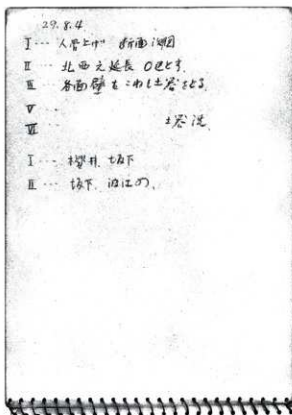 29.8.4
I… 人骨上げ 断面測図
II… 北西え延長 Oeとる
III… 各面壁をこわし土器をとる
V…
VI… 土器洗
I… 櫻井 坂下
II… 坂下